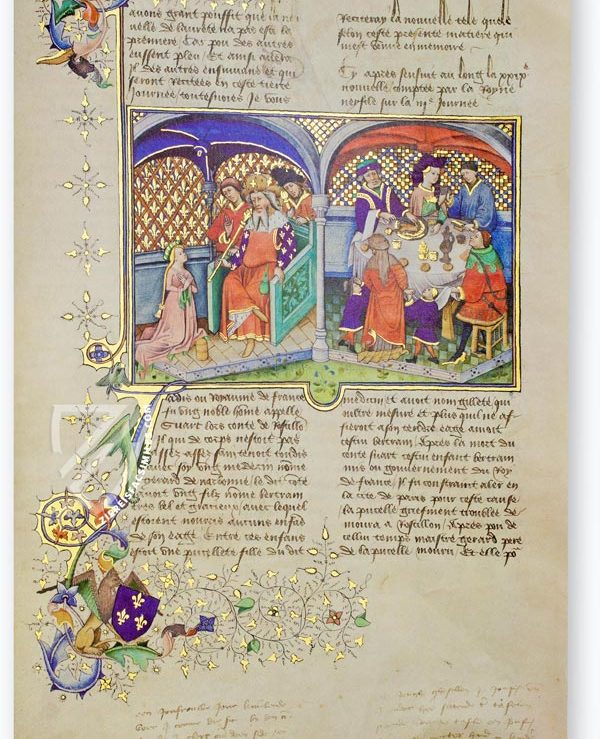 avons grant pouffit que la nou
uelle de laurete na pas est la
premiere Car pou des autres
eussent pleu / Et ainsi aduen
il des autres ensuiuans et qui
seront Recitees en ceste tierce
Journee / toutesuoies Je vous
Reciteray la nouuelle tele quele
selon ceste presente matiere qui
mest venue en memoire
Cy apres sensuit au long la
nouuelle comptee par la Royne
neyfile sur la iije Journee
Jadis ou Royaume de france
fu ung noble hôme appelle
Isuart lors conte de Rossillo
Il qui de corps nestoit pas
assez sain tenoit tousdis
auec soy ung medecin nôme
Gerard de nerbonne le dit côte
auoit ung filz nôme bertram
tres bel et gracieux / auec lequel
estoient nourris aucuns enfãs
de son eage Entre ces enfans
estoit une pucellete fille du dit
medecin et auoit nom gillete qui
oultre mesure et plus quil ne af
fieroit a son tendre eage amoit
cestui bertram / Apres la mort du
conte suart cestui enfant bertram
mis ou gouuernement du Roy
de france / Il fu constraint aler en
la cite de paris pour ceste cause
la pucelle griefment troublee de
moura a Rossillon / Apres pou de
cellui temps maistre gerard pere
de la pucelle mouru / Et elle po
ZIEREISFACSIMILES.COM